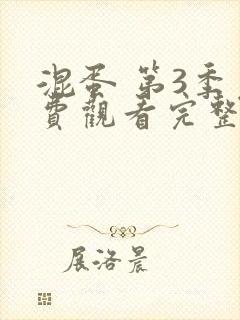 混蛋 第3季
費觀看完整
展洛晨